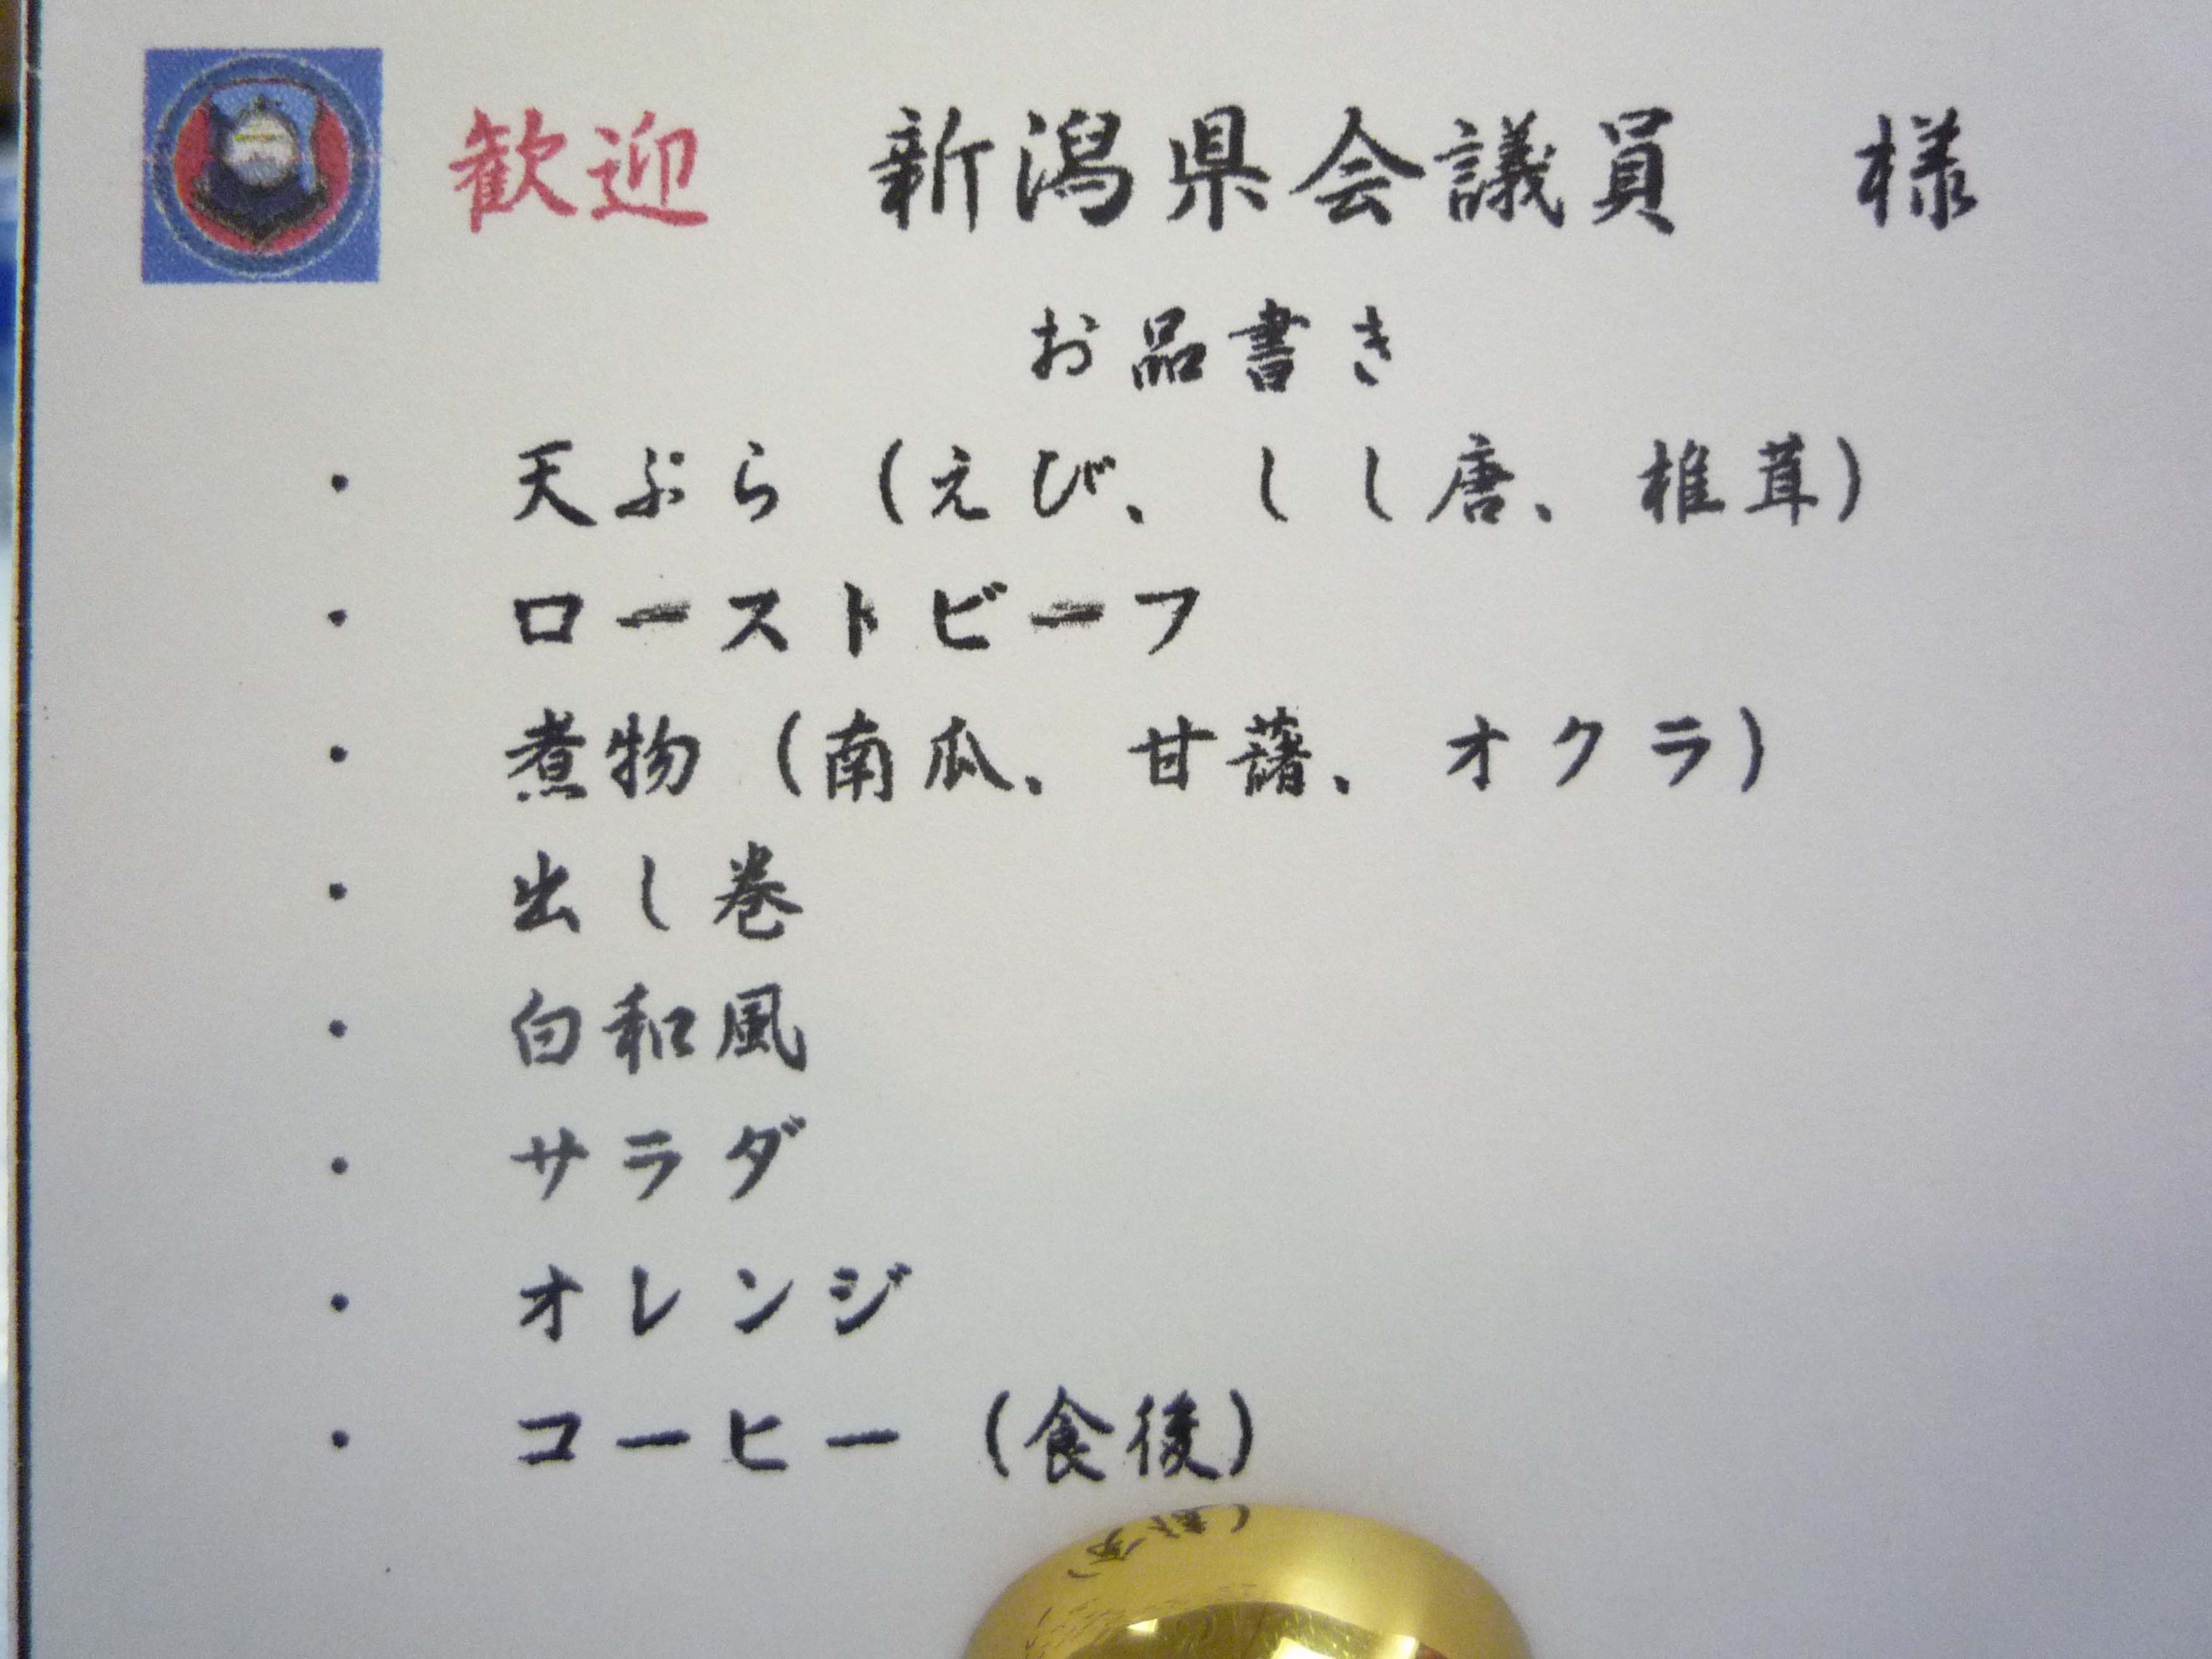 歓迎 新潟県会議員 様
お品書き
・ 天ぷら（えび、しし唐、椎茸）
・ ローストビーフ
・ 煮物（南瓜、甘藷、オクラ）
・ 出し巻
・ 白和風
・ サラダ
・ オレンジ
・ コーヒー（食後）